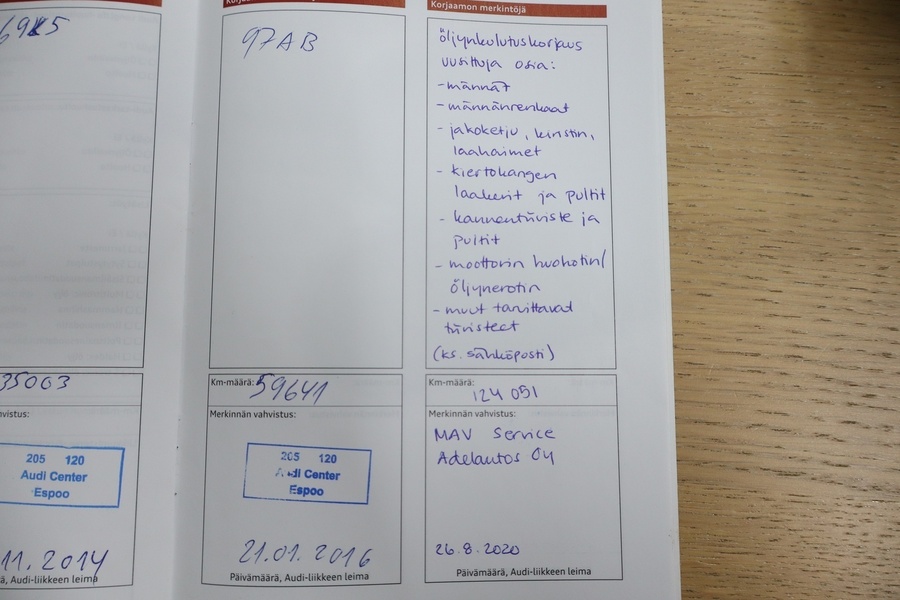 6945
35003
vistus:
205 120
Audi Center
Espoo
11.2014
ä, Audi-liikkeen leima
97AB
Km-määrä: 59641
Merkinnän vahvistus:
205 120
Audi Center
Espoo
21.01.2016
Päivämäärä, Audi-liikkeen leima
Korjaamon merkintöjä
öljynkulutuskorjaus
uusittuja osia:
- männät
- männänrenkaat
- jakoketju, kiristin,
laahaimet
- kiertokangen
laakerit ja pultit
- kannentiiviste ja
pultit
- moottorin huohotin/
öljynerotin
- muut tarvittavat
tiivisteet
(ks. sähköposti)
Km-määrä: 124 051
Merkinnän vahvistus:
MAV Service
Adelautos Oy
26.8.2020
Päivämäärä, Audi-liikkeen leima